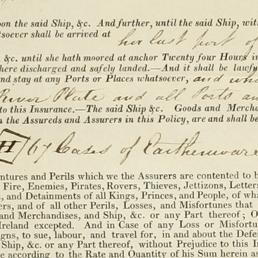 pon the said Ship, &c. And further, until the said Ship, wit
tsoever shall be arrived at her last port of
&c. until she hath moored at anchor Twenty four Hours in
here discharged and safely landed.—And it shall be lawful
nd stay at any Ports or Places whatsoever, and
River Plate and all Ports an
to this Insurance.—The said Ship &c. Goods and Merchan
n the Assureds and Assurers in this Policy, are and shall be
H 67 Cases of Earthenware
entures and Perils which we the Assurers are contented to b
Fire, Enemies, Pirates, Rovers, Thieves, Jettizons, Letters
s, and Detainments of all Kings, Princes, and People, of wh
ers, and of all other Perils, Losses, and Misfortunes that
and Merchandises, and Ship, &c. or any Part thereof; O
Ireland excepted. And in Case of any Loss or Misfortu
igns, to sue, labour, and travel for, in and about the Defen
Ship, &c. or any Part thereof, without Prejudice to this In
e according to the Rate and Quantity of his Sum herein as